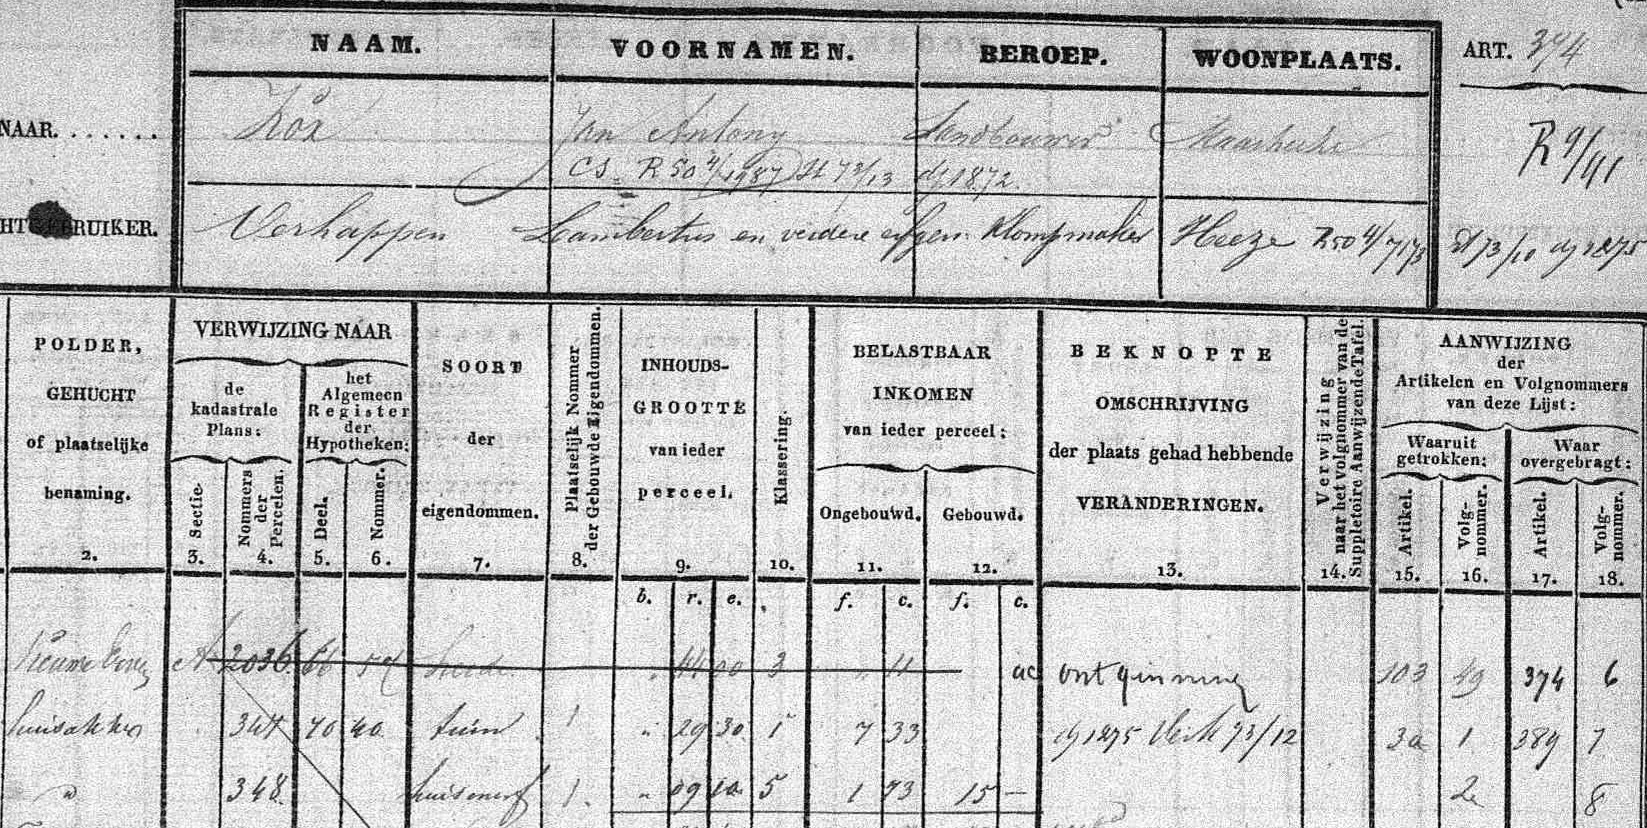 NAAM. VOORNAMEN. BEROEP. WOONPLAATS. ART. 374
NAAR. . . . . . . Jan Antony Landbouwer Maarheeze R 9/91
CS. R 50 4/1287 St 73/13 dj 1872.
HT RUIKER. Verhappen Lambertus en verdere erfgen. Klompmaker Heeze R50 4/7173 St 73/10 dj 1875
POLDER,
GEHUCHT
of plaatselijke
benaming.
2.
VERWIJZING NAAR
de
kadastrale
Plans:
Sectie.
3.
Nommers
der
Percelen.
4.
het
Algemeen
Register
der
Hypotheken:
Deel.
5.
Nommer.
6.
SOORT
der
eigendommen.
7.
Plaatselijk Nommer
der Gebouwde Eigendommen.
8.
INHOUDS-
GROOTTE
van ieder
perceel.
9.
Klassering.
10.
BELASTBAAR
INKOMEN
van ieder perceel;
Ongebouwd.
11.
Gebouwd.
12.
BEKNOPTE
OMSCHRIJVING
der plaats gehad hebbende
VERANDERINGEN.
13.
Verwijzing
naar het volgnommer van de
Suppletoire Aanwijzende Tafel.
14.
AANWIJZING
der
Artikelen en Volgnommers
van deze Lijst:
Waaruit
getrokken:
Artikel.
15.
Volg-
nommer.
16.
Waar
overgebragt:
Artikel.
17.
Volg-
nommer.
18.
b. r. e. f. c. f. c.
A 2036 66 54 heide " 44 00 3 " 11 ontginning 103 49 374 6
huisakker 347 70 40 tuin 1 " 29 30 1 7 33 dj 1275 Verk 73/12 3a 1 389 7
" 348. huis en erf 1. " 09 10 5 1 73 15 — 2 8